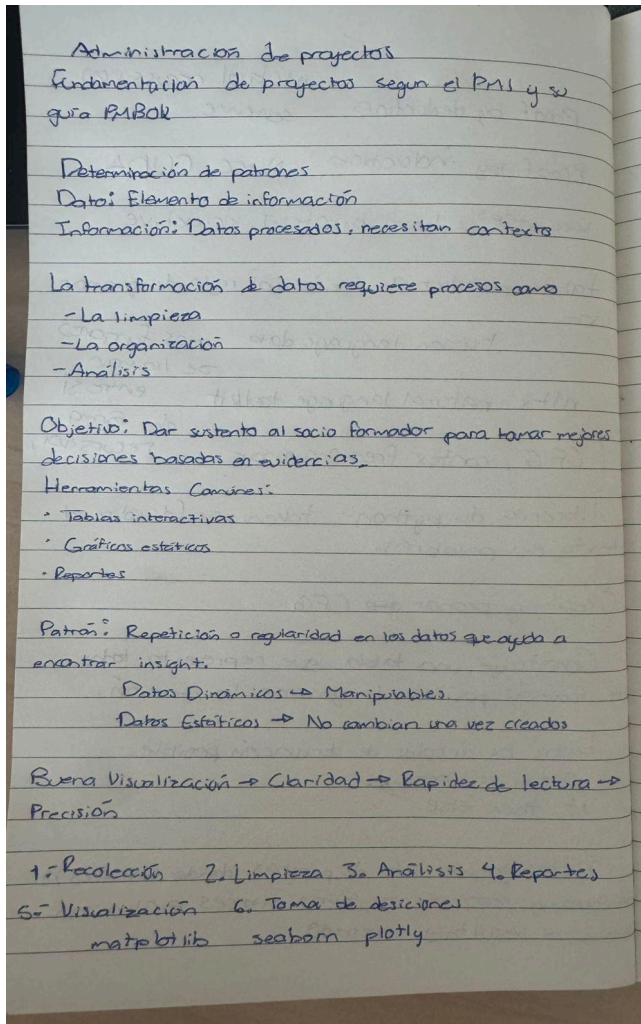 Administración de proyectos
Fundamentación de proyectos segun el PMI y su
guía PMBOK
Determinación de patrones
Dato: Elemento de información
Información: Datos procesados, necesitan contexto
La transformación de datos requiere procesos como
-La limpieza
-La organización
-Análisis
Objetivo: Dar sustento al socio formador para tomar mejores
decisiones basadas en evidencias.
Herramientas Comunes:
· Tablas interactivas
· Gráficos estáticos
· Reportes
Patrón: Repetición o regularidad en los datos que ayuda a
encontrar insight.
Datos Dinámicos → Manipulables
Datos Estáticos → No cambian una vez creados
Buena Visualización → Claridad → Rapidez de lectura →
Precisión
1.- Recolección 2. Limpieza 3. Análisis 4. Reportes
5.- Visualización 6. Toma de desiciones
matplotlib seaborn plotly